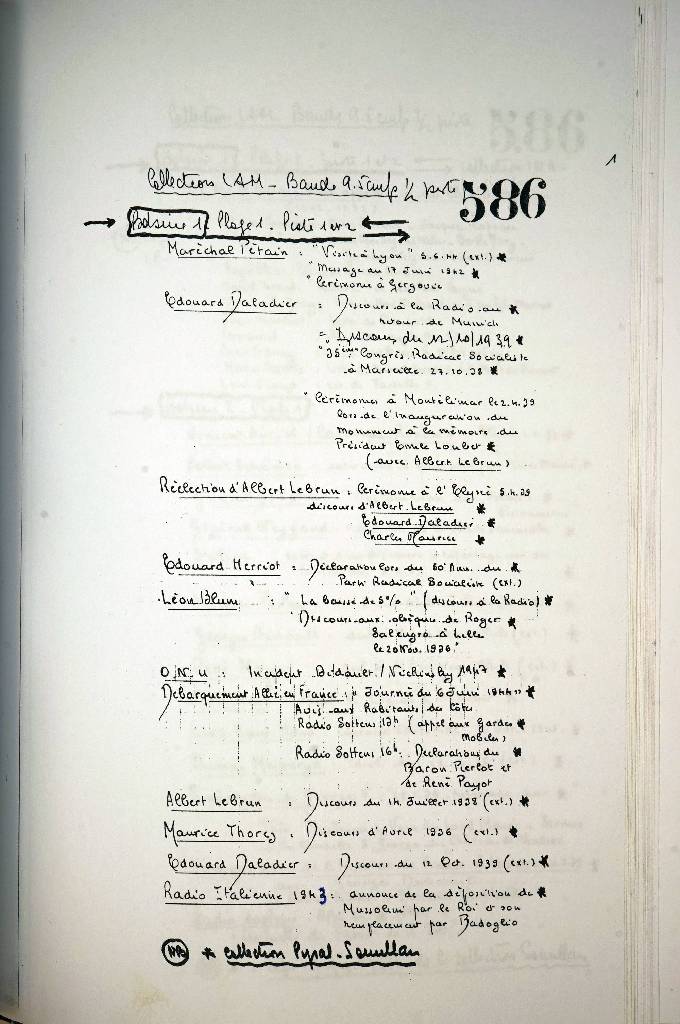 1
Collections LAM - Bande 9.5 cm/s 1/2 piste 586
→ Bobine 1 Plage 1. Piste 1 et 2
Maréchal Pétain : "Visite à Lyon" 5.6.44 (ext.) *
"Message du 17 Juin 1942 *
"Cérémonie à Gergovie
Edouard Daladier : Discours à la Radio au *
retour de Munich
= Discours du 12/10/1939 *
"35ème Congrès Radical Socialiste
à Marseille. 27.10.38 *
"Cérémonies à Montélimar le 2.4.39
lors de l'inauguration du
monument à la mémoire du
Président Emile Loubet *
(avec Albert Lebrun)
Réélection d'Albert Lebrun : Cérémonie à l'Elysée 5.4.39
discours d'Albert Lebrun *
Edouard Daladier *
Charles Maurice *
Edouard Herriot : Déclaration lors du 60° Ann. du *
Parti Radical Socialiste (ext.)
Léon Blum : "La baisse de 5%" (discours à la Radio) *
"Discours aux obsèques de Roger
Salengro à Lille *
le 20 Nov. 1936."
O.N.U : Incident Bidault/Vichinsky 1947 *
Débarquement Allié en France : "Journée du 6 Juin 1944" *
Avis aux habitants des côtes
Radio Sottens 13h (appel aux Gardes *
mobiles)
Radio Sottens 16h. Déclarations du *
Baron Pierlot et
de René Payot
Albert Lebrun : Discours du 14 Juillet 1938 (ext.) *
Maurice Thorez : Discours d'Avril 1936 (ext.) *
Edouard Daladier : Discours du 12 Oct. 1939 (ext.) *
Radio Italienne 1943 : annonce de la déposition de *
Mussolini par le Roi et son
remplacement par Badoglio
* collection Pyral-